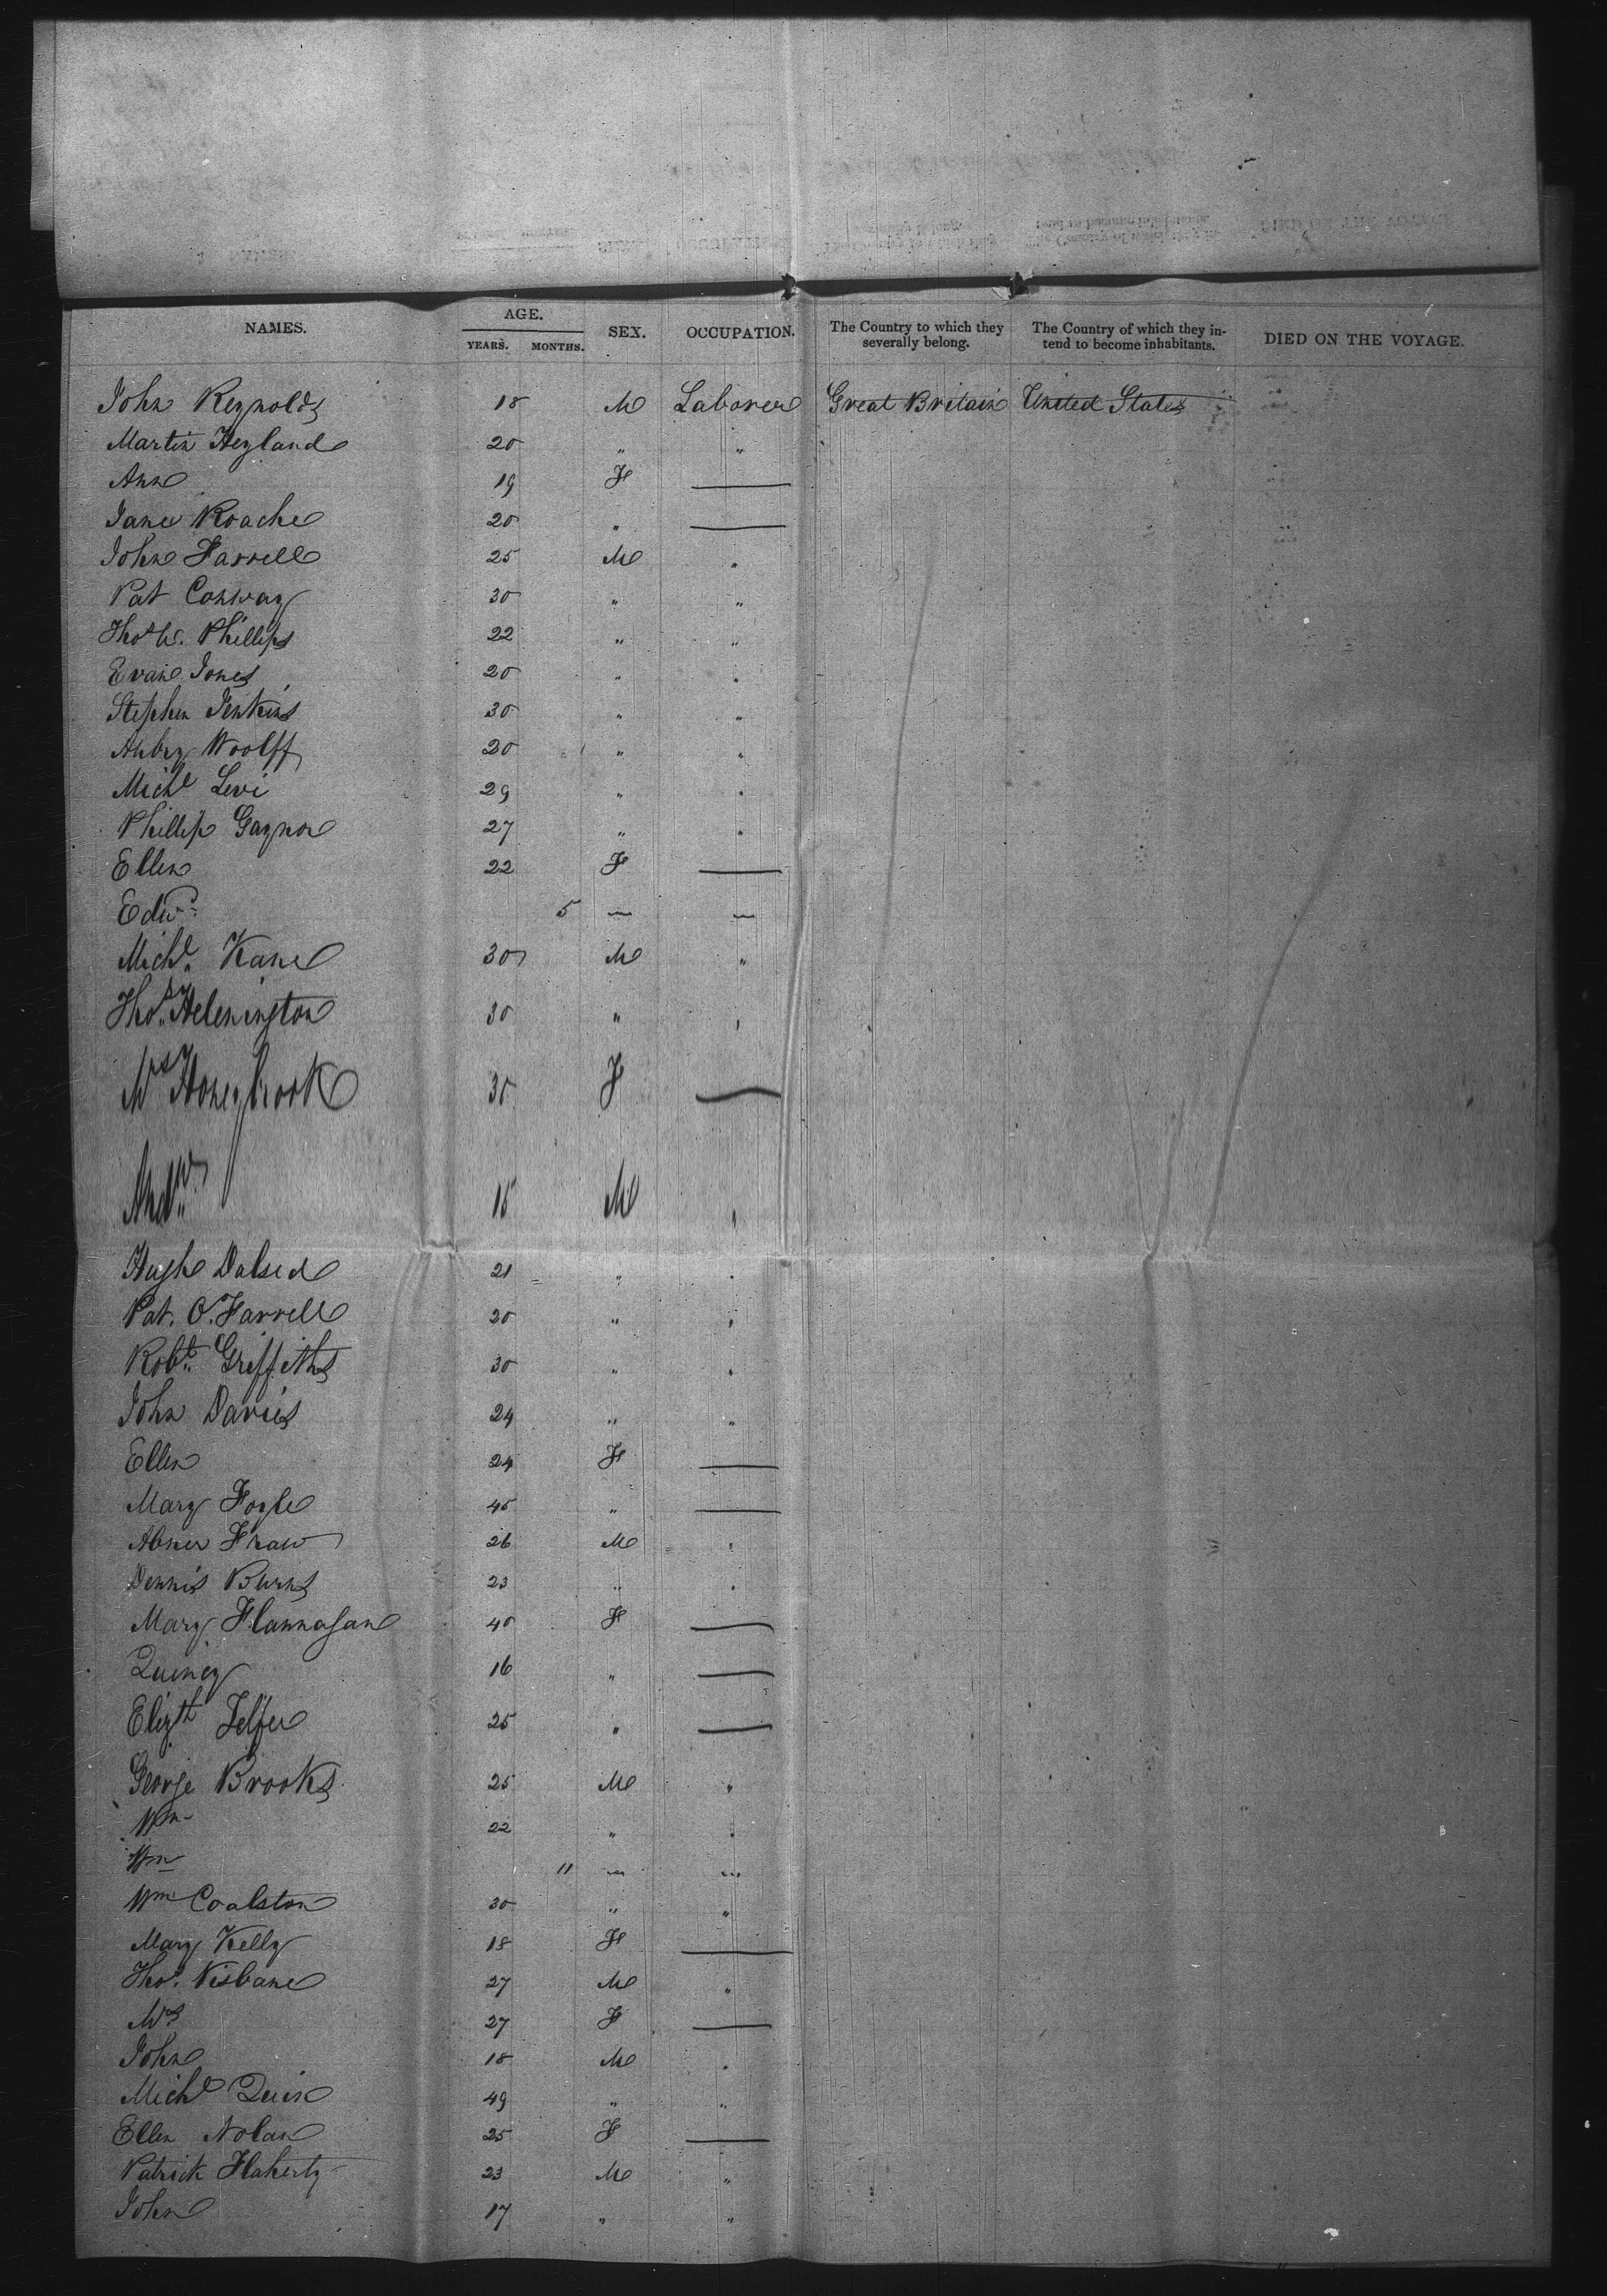 NAMES. AGE. YEARS. MONTHS. SEX. OCCUPATION. The Country to which they severally belong. The Country of which they intend to become inhabitants. DIED ON THE VOYAGE.
John Reynolds 18 M Laborer Great Britain United States
Martin Heyland 20 " "
Ann 19 F —
Jane Roache 20 " —
John Farrell 25 M "
Pat Conway 30 " "
Thos W. Phillips 22 " "
Evan Jones 20 " "
Stephen Jenkins 30 " "
Aubry Woolff 20 " "
Michl Levi 29 " "
Phillip Gaynor 27 " "
Ellen 22 F —
Edwd 5 — —
Michl. Kane 30 M "
Thos. Helenington 30 " "
Mrs Honeybrook 30 F —
Andw 15 M "
Hugh Dalsed 21 " "
Pat. O. Farrell 20 " "
Robt. Griffiths 30 " "
John Davies 24 " "
Ellen 24 F —
Mary Foyle 45 " —
Abner Fraw 26 M "
Dennis Burns 23 " "
Mary Flannagan 40 F —
Quincy 16 " —
Elizth Telfer 25 " —
George Brooks 25 M "
Wm 22 " "
Wm 11 — "
Wm Coalston 30 " "
Mary Kelly 18 F —
Thos. Nisbane 27 M "
Mrs 27 F —
John 18 M "
Michl Quin 49 " "
Ellen Nolan 25 F —
Patrick Flaherty 23 M "
John 17 " "